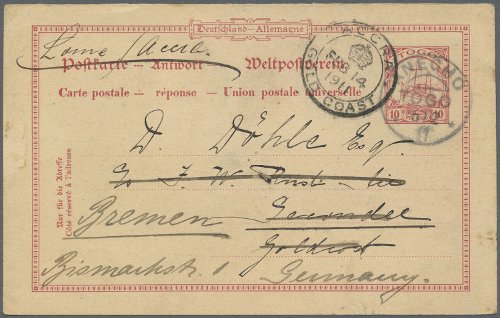 Deutschland—Allemagne
Lome / Accra
Postkarte — Antwort Weltpostverein
Carte postale — réponse — Union postale universelle
ACCRA
GOLD COAST
TOGO
10 10
D. Döhle Esq
c/o J. W.
Bremen
Goldcost
Bismarckstr. 1 Germany.
Nur für die Adresse
Côté réservé à l'adresse